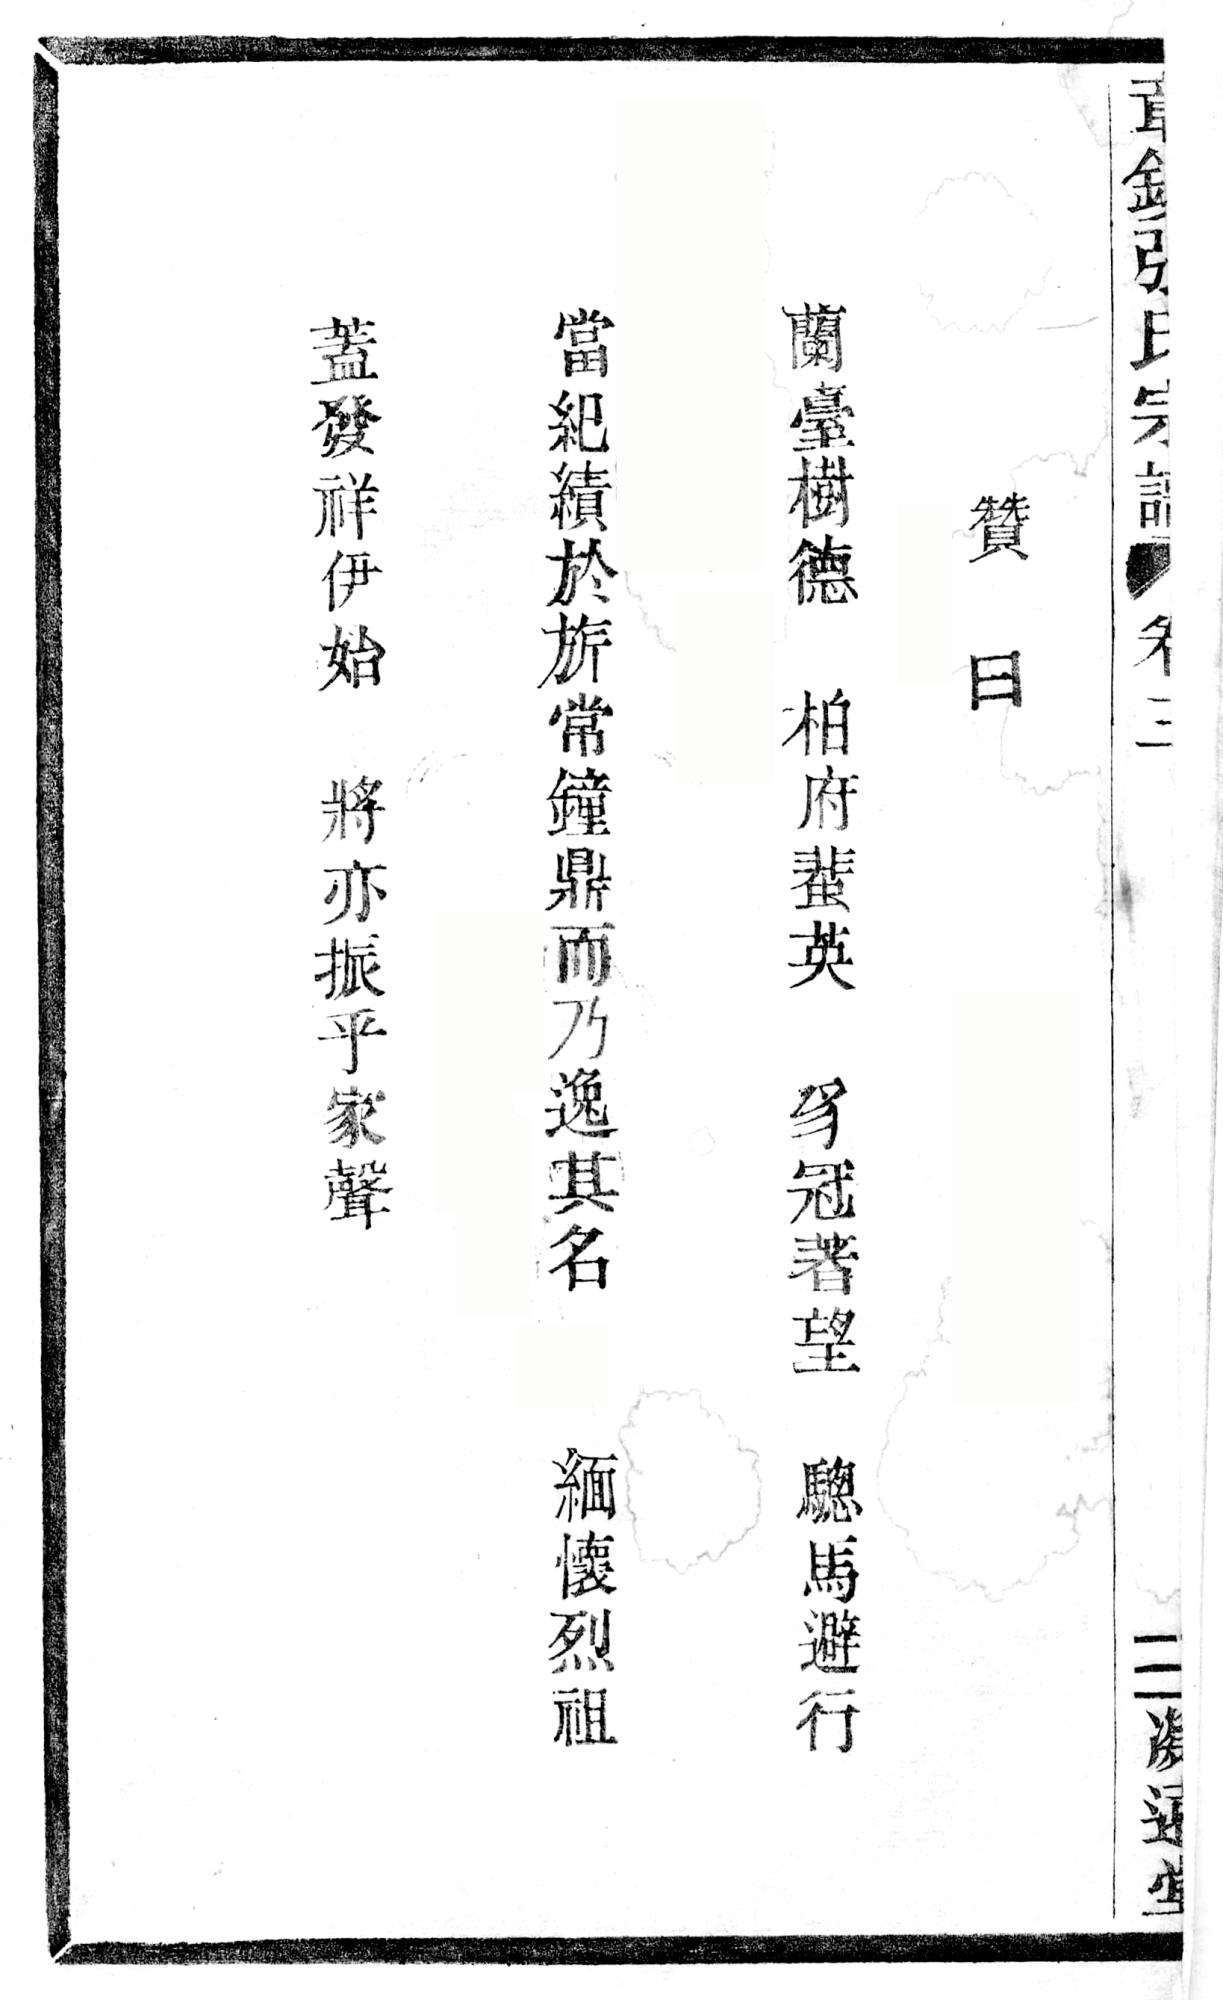 張氏宗譜 卷三 三 堂
贊曰
蘭臺樹德 柏府蜚英 豸冠著望 驄馬避行
當紀績於旂常鐘鼎而乃逸其名 緬懷烈祖
蓋發祥伊始 將亦振乎家聲